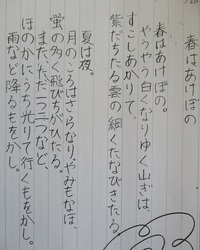 春はあけぼの
春はあけぼの。
やうやう白くなりゆく山ぎは、
すこしあかりて、
紫だちたる雲の細くたなびきたる。
夏は夜。
月のころはさらなり、やみもなほ、
蛍の多く飛びちがひたる。
また、ただ一つ二つなど、
ほのかにうち光りて行くもをかし。
雨など降るもをかし。